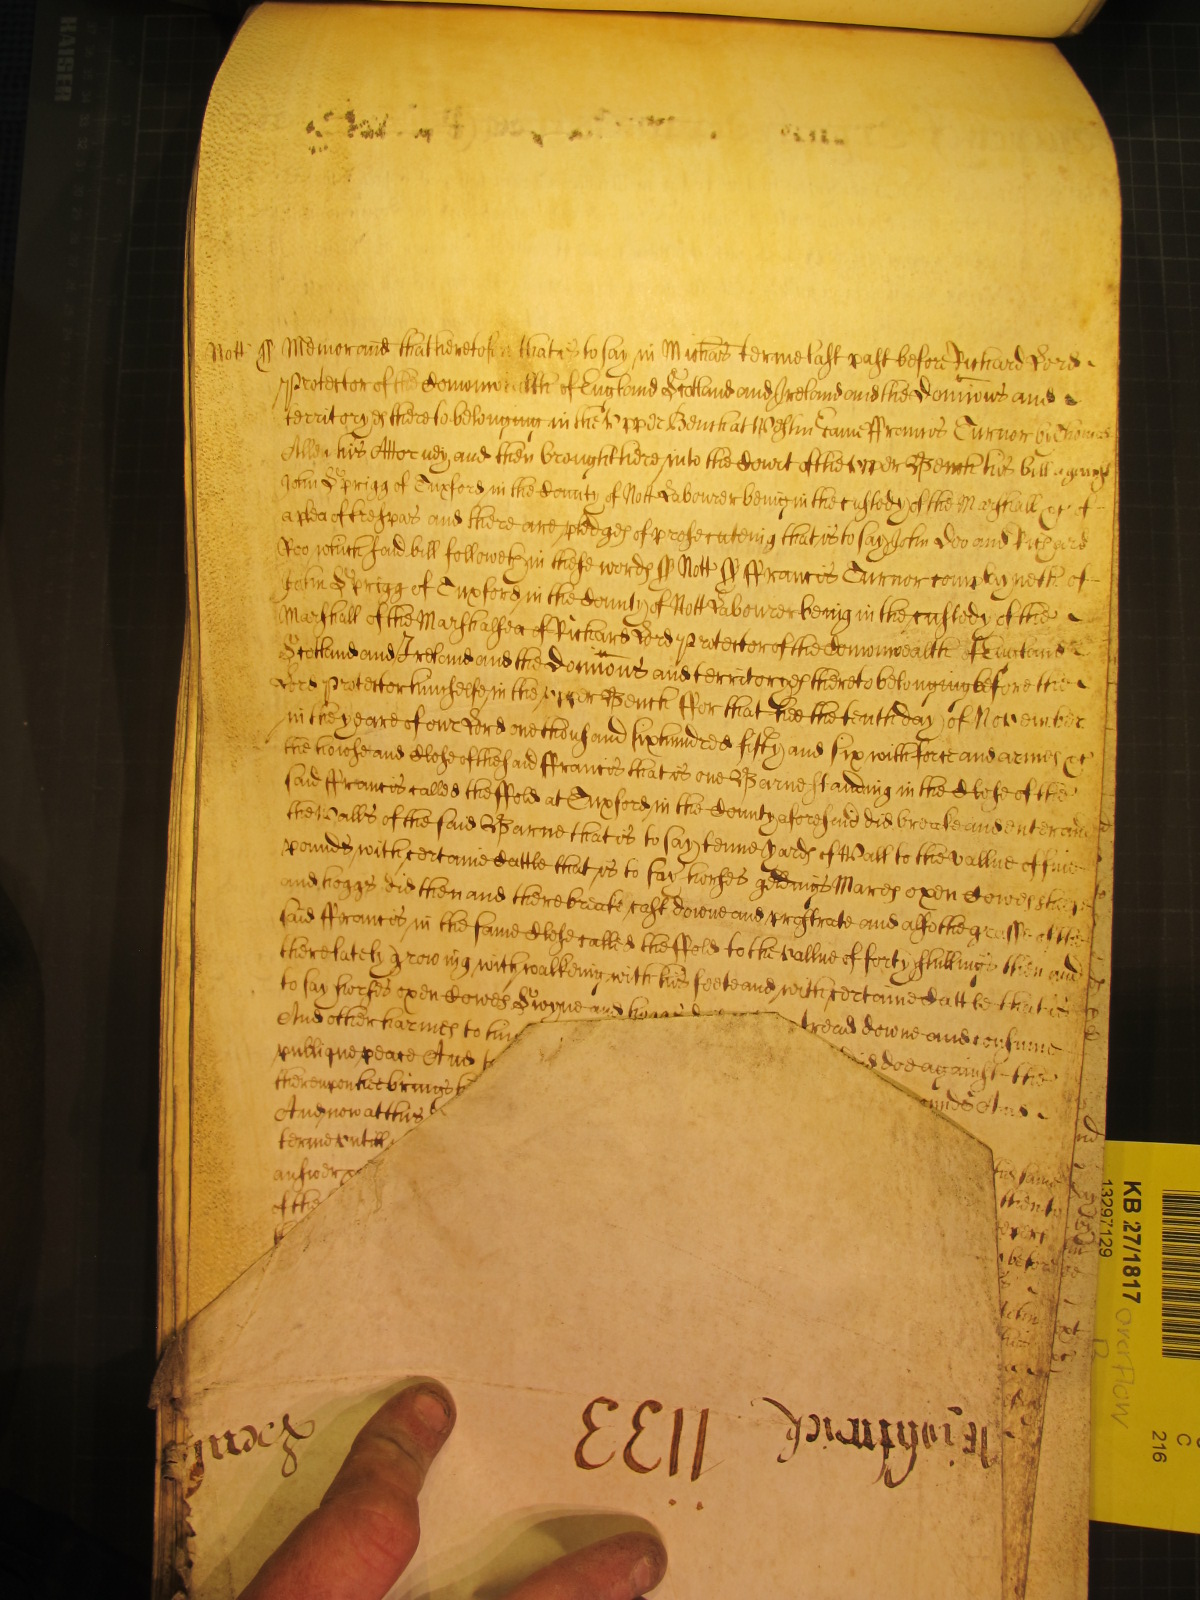 Nott ss Memorand that heretofore that is to say in Michas terme last past before Richard Lord
Protector of the Comonwealth of England Scotland and Ireland and the Dominions and
territoryes thereto belonging in the Upper Bench at Westm Came Francis Turnor by Thomas
Allen his Attorney and then brought here into the Court of the upper Bench his bill against
John Sprigg of Tuxford in the County of Nott Labourer being in the custody of the Marshall &c of
a plea of trespas and there are pledges of prosecuteing that is to say John Doo and Richard
Roo which said bill followeth in these words ss Nott ss ffrancis Turnor complyneth of
John Sprigg of Tuxford in the County of Nott Labourer being in the custody of the
Marshall of the Marshalsea of Richard Lord Protector of the Comonwealth of England
Scotland and Ireland and the Dominions and territoryes thereto belonging before the
Lord Protector himselfe in the upper Bench ffor that hee the tenth day of November
in the yeare of our Lord one thousand six hundred fifty and six with force and armes &c
the howse and Close of the said ffrancis that is one Barne standing in the Close of the
said ffrancis called the ffold at Tuxford in the County aforesaid did breake and enter and
the Walls of the said Barne that is to say tenne yards of Wall to the vallue of five
pounds with certaine Cattle that is to say horses geldings Mares oxen Cowes sheepe
and hoggs did then and there breake cast downe and prostrate and also the grasse of the
said ffrancis in the same Close called the ffold to the vallue of forty shillings then and
there lately growing with walkeing with his feete and with certaine Cattle that is
to say horses oxen Cowes Swyne and hoggs tread downe and consume
And other harmes to him did doe against the
publique peace And
thereupon hee brings
And now at this
terme untill the same
answer
of the
before
KB 27/1817
13297129
overflow
C
216
1133